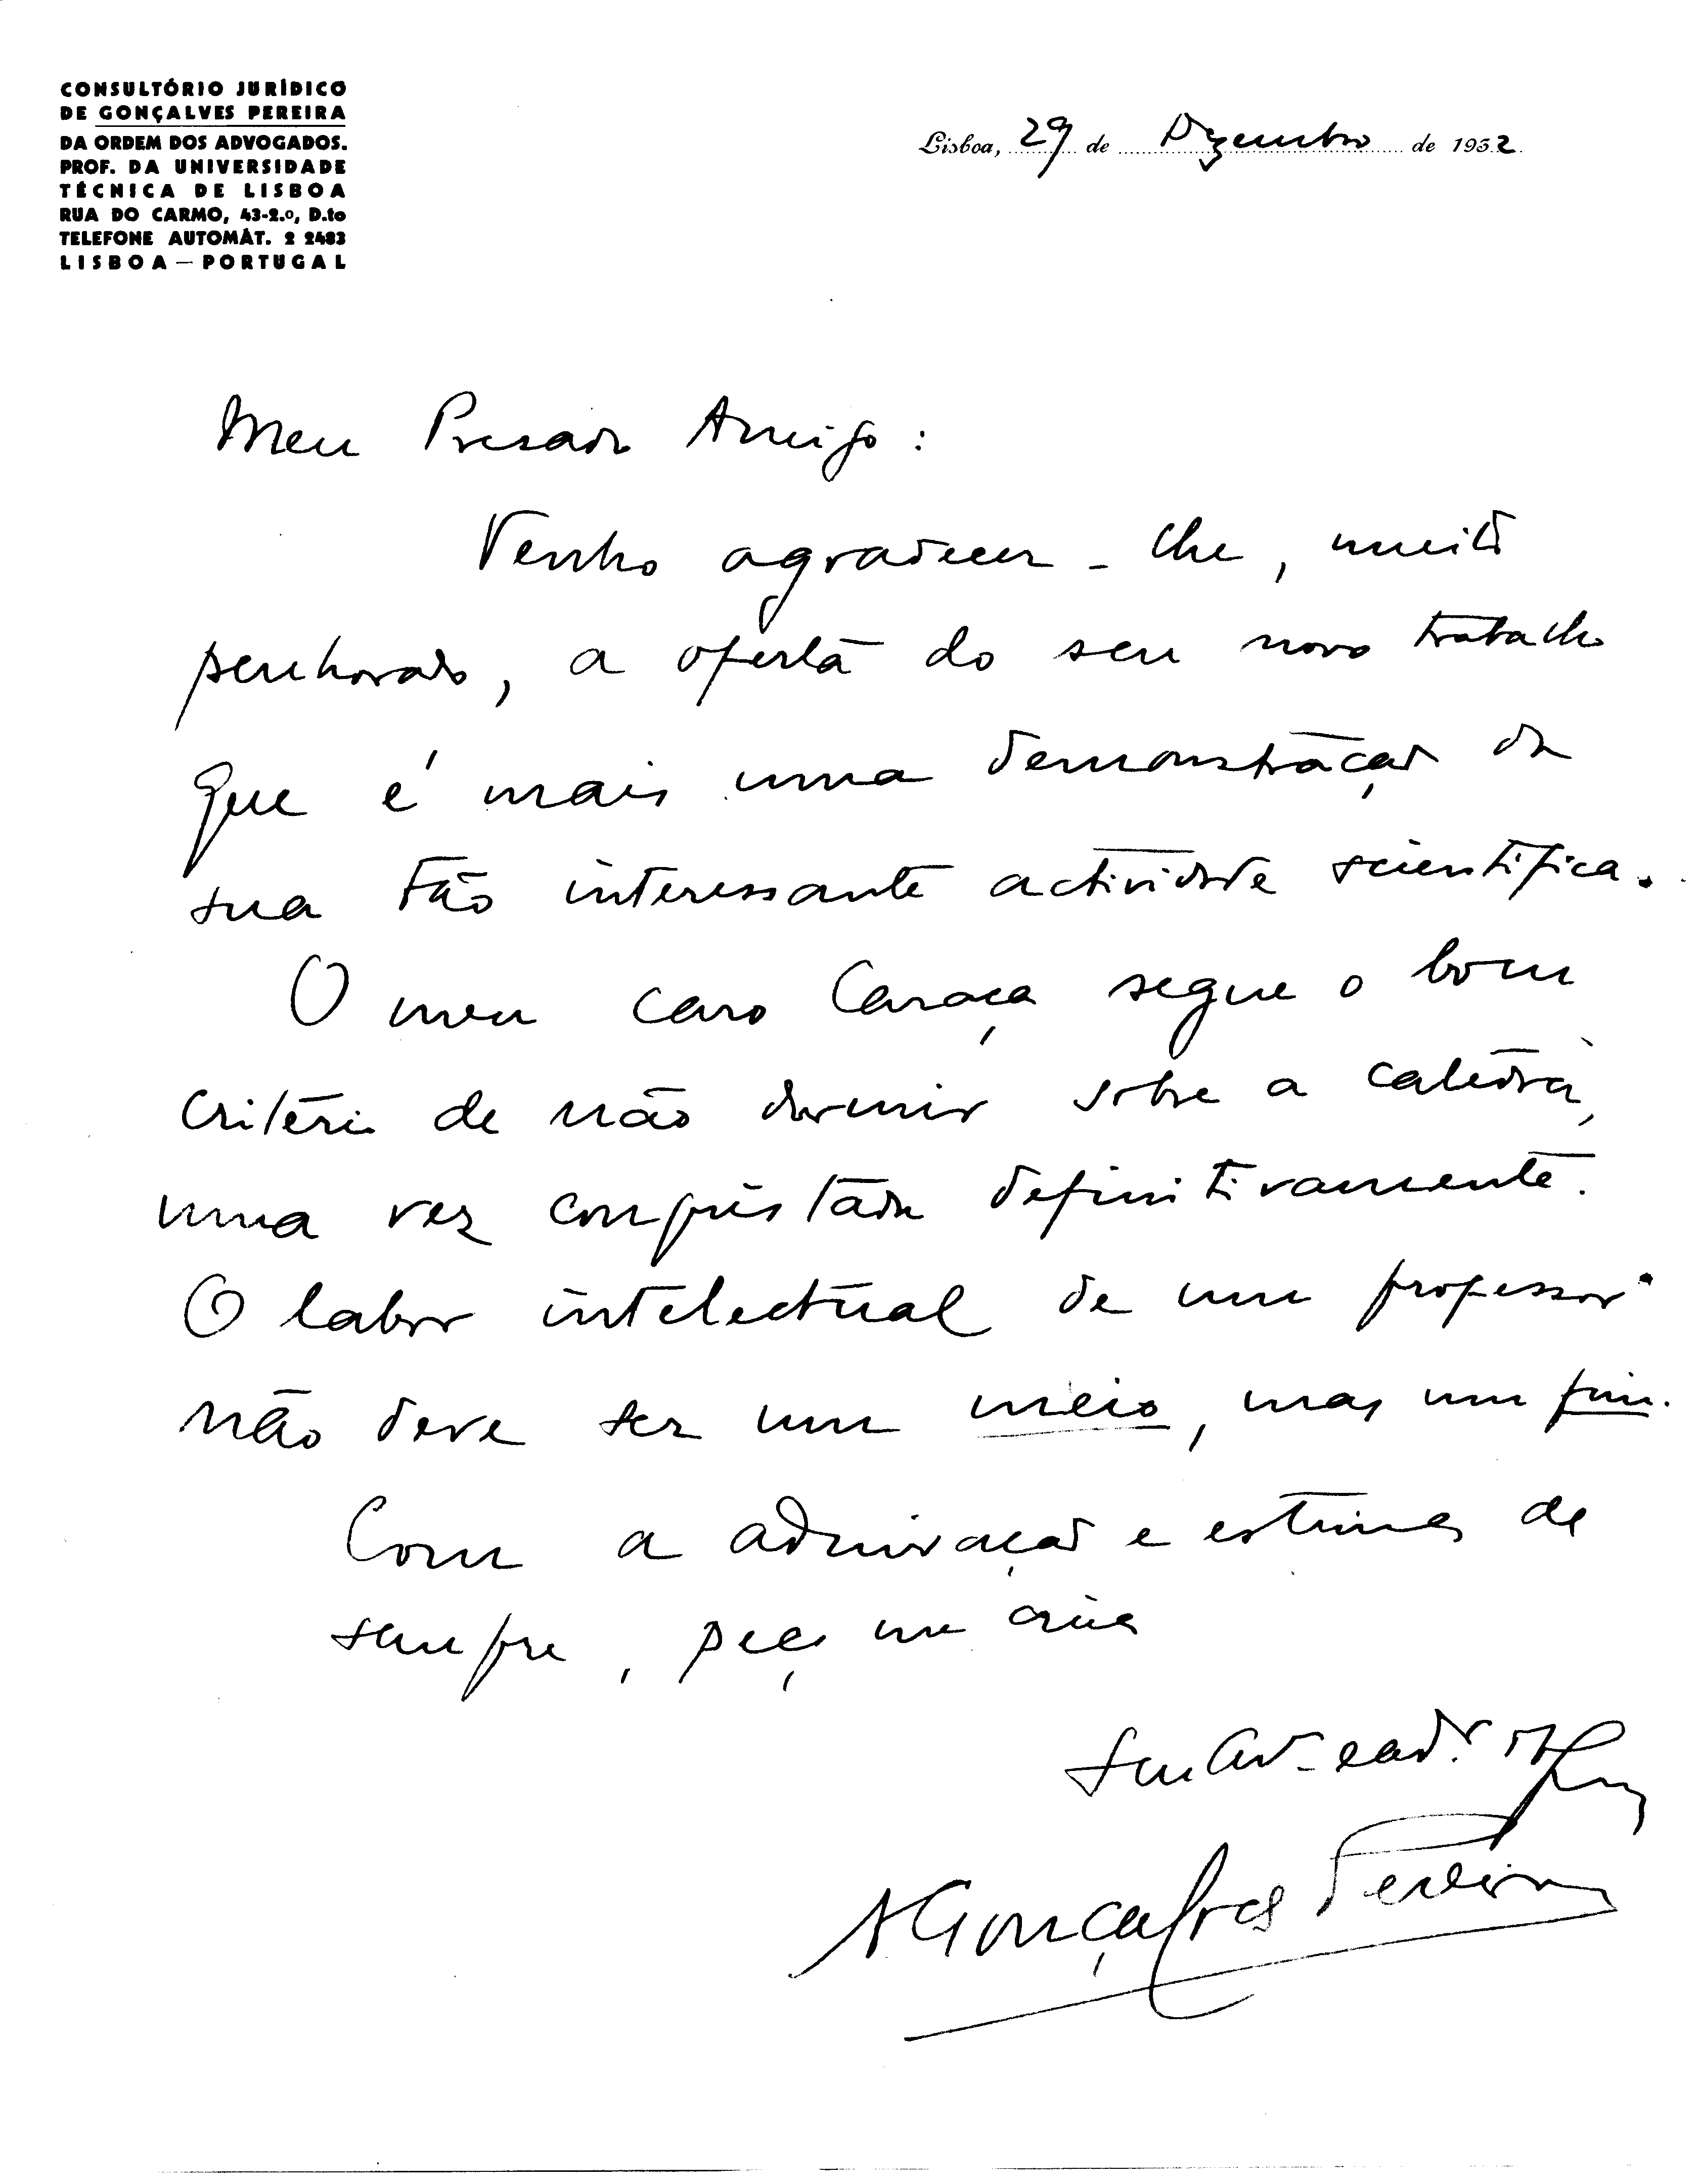 CONSULTÓRIO JURÍDICO
DE GONÇALVES PEREIRA
DA ORDEM DOS ADVOGADOS.
PROF. DA UNIVERSIDADE
TÉCNICA DE LISBOA
RUA DO CARMO, 43-2.º, D.to
TELEFONE AUTOMÁT. 2 2483
LISBOA — PORTUGAL
Lisboa, 29 de Dezembro de 1932
Meu Presado Amigo:
Venho agradecer-lhe, muito
penhorado, a oferta do seu novo trabalho
que é mais uma demonstração da
sua tão interessante actividade scientifica.
O meu caro Caraça segue o bom
critério de não dormir sobre a catedra,
uma vez conquistada definitivamente.
O labor intelectual de um professor
não deve ser um meio, mas um fim.
Com a admiração e estima de
sempre, peço me creia
Seu
AGonçalves Pereira